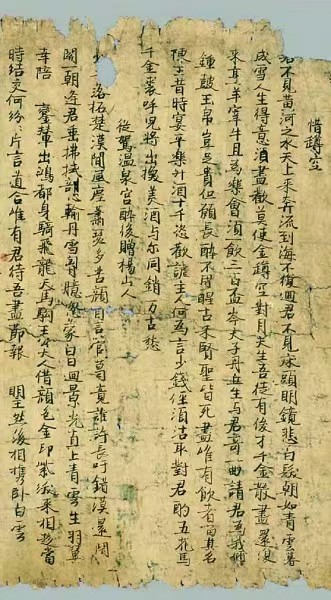 惜罇空
君不見黃河之水天上來奔流到海不復迴君不見床頭明鏡悲白髮朝如青雲暮
成雪人生得意須盡歡莫使金罇空對月天生吾徒有俊才千金散盡還復
來烹羊宰牛且為樂會須飲三百盃岑夫子丹丘生與君哥一曲請君為我傾
鍾鼓玉帛豈足貴但願長醉不用醒古來賢聖皆死盡唯有飲者留其名
陳王昔時宴平樂斗酒十千恣歡謔主人何為言少錢徑須沽取對君酌五花馬
千金裘呼兒將出換美酒与尓同銷万古愁
從駕溫泉宮醉後贈楊山人
落拓楚漢間風塵蕭瑟多苦顏自言管葛竟誰許長吁錯漠還閉
關朝逢君垂拂拭剖心輸丹雪胸臆忽蒙白日迴景光直上青雲生羽翼
幸陪鸞輦出鴻都身騎飛龍天馬駒王公大人借顏色金印紫綬來相趨當
時結交何紛紛片言道合唯有君待吾盡節報明主然後相攜臥白雲